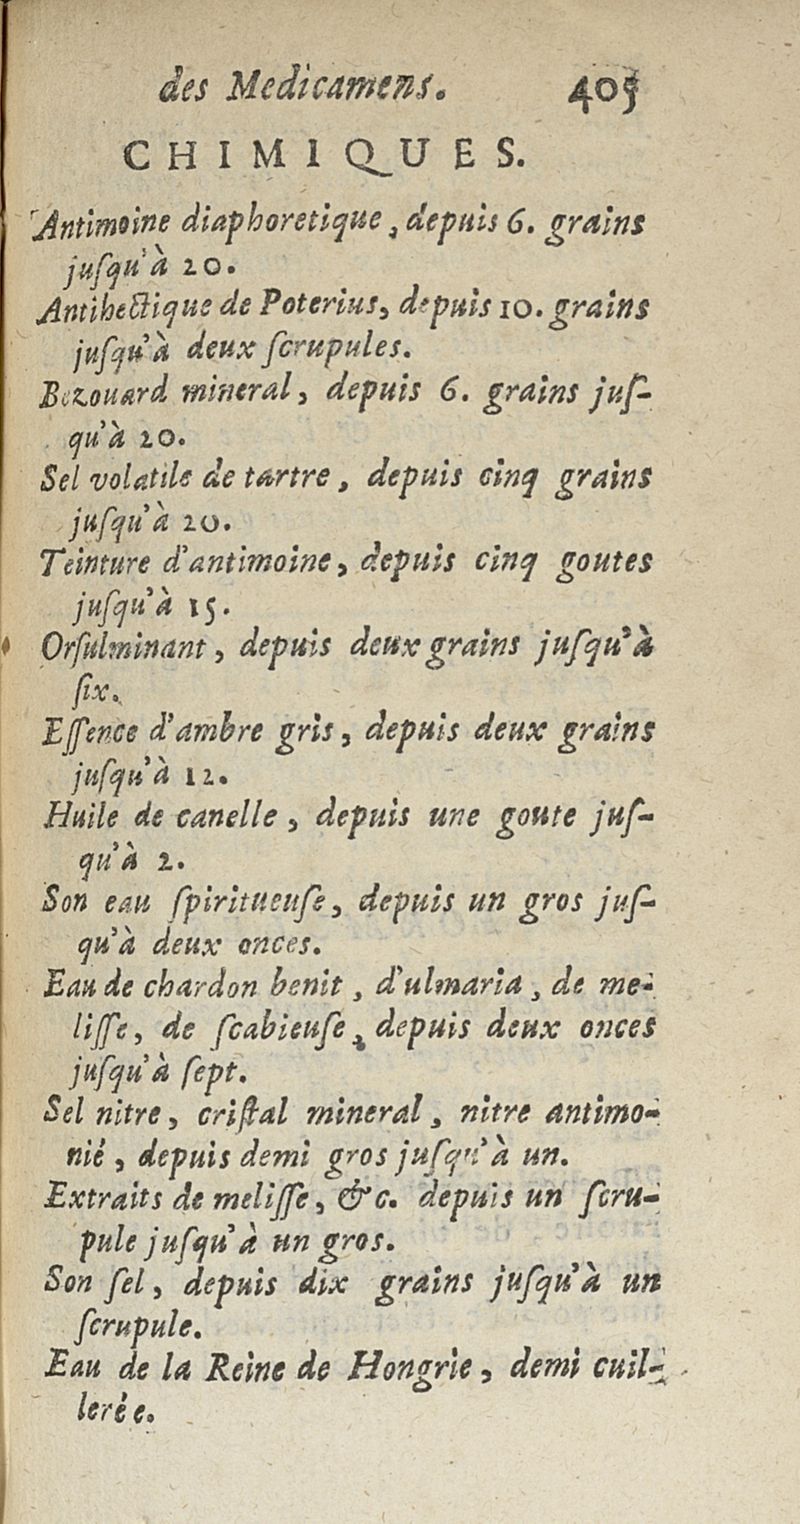 des Medicamens. 405
CHIMIQUES.
Antimoine diaphoretique, depuis 6. grains
juſqu'à 20.
Antihectique de Poterius, depuis 10. grains
juſqu'à deux ſcrupules.
Bezouard mineral, depuis 6. grains juſ-
qu'à 20.
Sel volatile de tartre, depuis cinq grains
juſqu'à 20.
Teinture d'antimoine, depuis cinq goutes
juſqu'à 15.
Orfulminant, depuis deux grains juſqu'à
ſix.
Eſſence d'ambre gris, depuis deux grains
juſqu'à 12.
Huile de canelle, depuis une goute juſ-
qu'à 2.
Son eau ſpiritueuſe, depuis un gros juſ-
qu'à deux onces.
Eau de chardon benit, d'ulmaria, de me-
liſſe, de ſcabieuſe, depuis deux onces
juſqu'à ſept.
Sel nitre, criſtal mineral, nitre antimo-
nié, depuis demi gros juſqu'à un.
Extraits de meliſſe, &c. depuis un ſcru-
pule juſqu'à un gros.
Son ſel, depuis dix grains juſqu'à un
ſcrupule.
Eau de la Reine de Hongrie, demi cuil-
lerée.